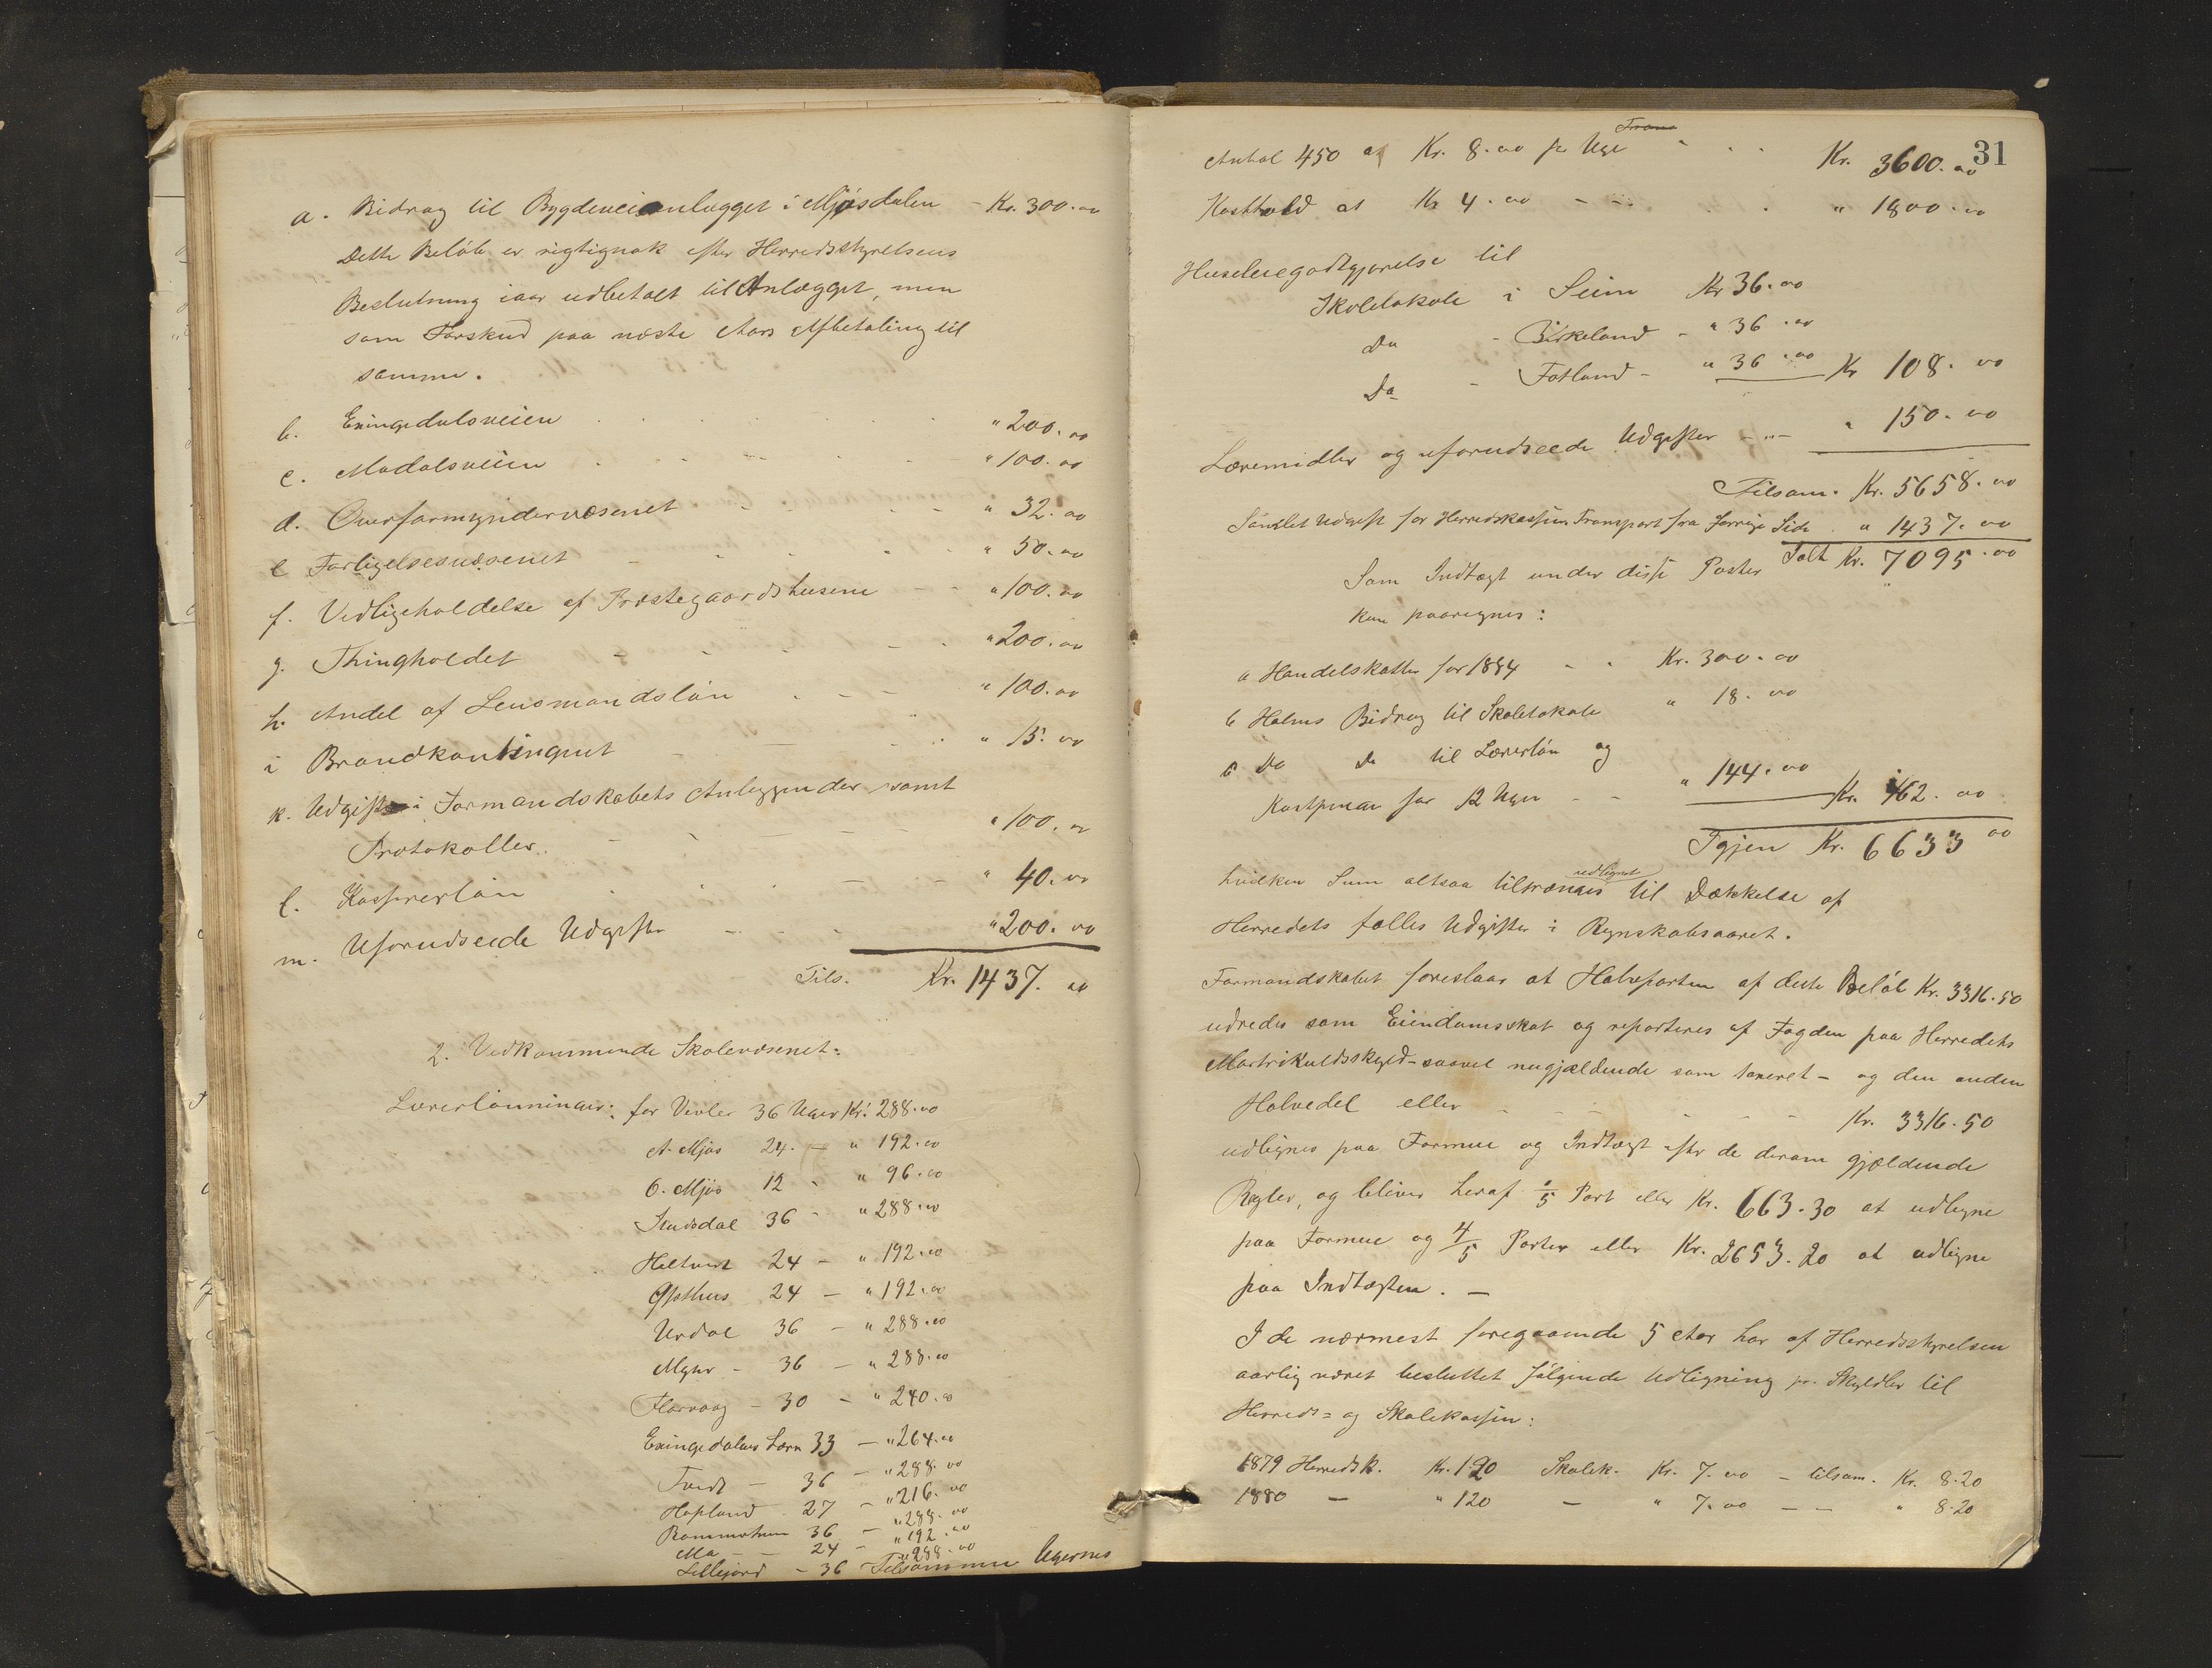 a. Bidrag til Bygdeveianlægget i Mjøsdalen - Kr. 300.00
Dette Beløb er rigtignok efter Herredsstyrelsens
Beslutning iaar udbetalt til Anlægget, men
som Forskud paa næste Aars Afbetaling til
samme.
b. Exingedalsveien " 200.00
c. Modalsveien " 100.00
d. Overformyndervæsenet " 32.00
e Forligelsesvæsenet " 50.00
f. Vedligeholdelse af Præstegaardshusene " 100.00
g. Thingholdet " 200.00
h. Andel af Lensmandsløn " 100.00
i Brandkontingent " 15.00
k. Udgifter i Formandskabets Anliggender samt
Protokoller " 100.00
l. Kassererløn " 40.00
m. Uforudseede Udgifter " 200.00
Tils. Kr. 1437.00
2. Vedkommende Skolevæsenet:
Lærerlønninger: for Vevler 36 Uger Kr. 288.00
A. Mjøs 24 - " 192.00
O. Mjøs 12 - " 96.00
36 - " 288.00
Heltvert 24 - " 192.00
24 - " 192.00
Urdal 36 - " 288.00
Myhr - 36 - " 288.00
Flatraag - 30 - " 240.00
Exingedalens Lærer 33 - " 264.00
Tvedt - 36 - " 288.00
Hopland 27 - " 216.00
36 - " 288.00
Mo - - 24 - " 192.00
Lillejord - 36 " 288.00 Tilsammen Ugernes
31
Antal 450 a Kr. 8.00 pr Uge Kr. 3600.00
Kosthold at Kr 4.00 - " 1800.00
Huusleiegodtgjørelse til
Skolelokale i Seim Kr 36.00
Do - Birkeland - " 36.00
Do - Fotland - " 36.00 Kr 108.00
Læremidler og uforudseede Udgifter - " 150.00
Tilsam. Kr. 5658.00
Samlet Udgift for Herredskassen Transport fra forrige Side " 1437.00
Ialt Kr. 7095.00
Som Indtægt under disse Poster
kan paaregnes:
a Handelskatter for 1884 - - Kr. 300.00
b Holms Bidrag til Skolelokale " 18.00
c Do Do til Lærerløn og
Kostpenge for 12 Uger - - " 144.00 Kr. 462.00
Igjen Kr. 6633 00
hvilken Sum altsaa tiltrænges udlignet til Dækkelse af
Herredets fælles Udgifter i Regnskabsaaret.
Formandskabet foreslaar at Halvparten af dette Beløb Kr. 3316.50
udredes som Eiendomsskat og reparteres af Fogden paa Herredets
Martrikulsskyld - saavel nugjældende som taxeret - og den anden
Halvdel eller - - - Kr. 3316.50
udlignes paa Formue og Indtægt efter de derom gjældende
Regler, og bliver heraf 1/5 Part eller Kr. 663.30 at udligne
paa Formue og 4/5 Parter eller Kr. 2653.20 at udligne
paa Indtægten. -
I de nærmest foregaaende 5 Aar har af Herredsstyrelsen
aarlig været besluttet følgende Udligning pr. Skylddlr til
Herreds= og Skolekassen:
1879 Herredsk. Kr. 1.20 Skolek. Kr. 7.00 - tilsam. Kr. 8.20
1880 - " 120 - " 7.00 - - " 8.20